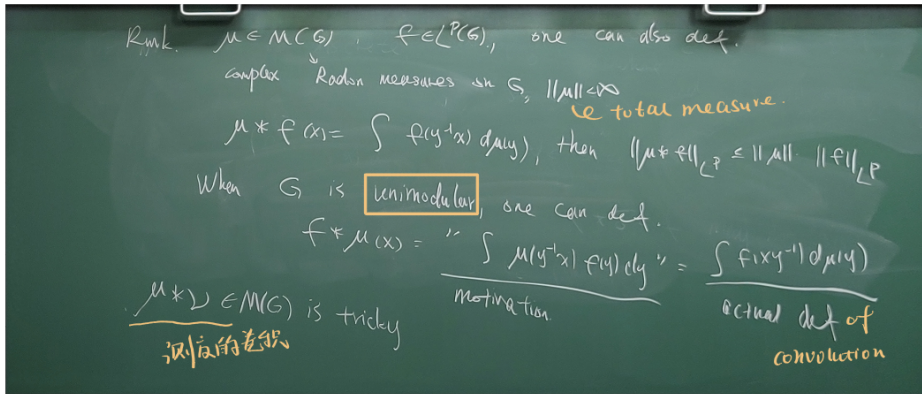 Rmk. μ ∈ M(G), f ∈ L^P(G), one can also def.
complex Radon measures on G, ||μ|| < ∞
ie total measure.
μ * f(x) = ∫ f(y⁻¹x) dμ(y), then ||μ * f||_{L^P} ≤ ||μ|| · ||f||_{L^P}
When G is unimodular, one can def.
f * μ(x) = " ∫ μ(y⁻¹x) f(y) dy " = ∫ f(xy⁻¹) dμ(y)
motivation
actual def of convolution
μ * ν ∈ M(G) is tricky
测度的卷积